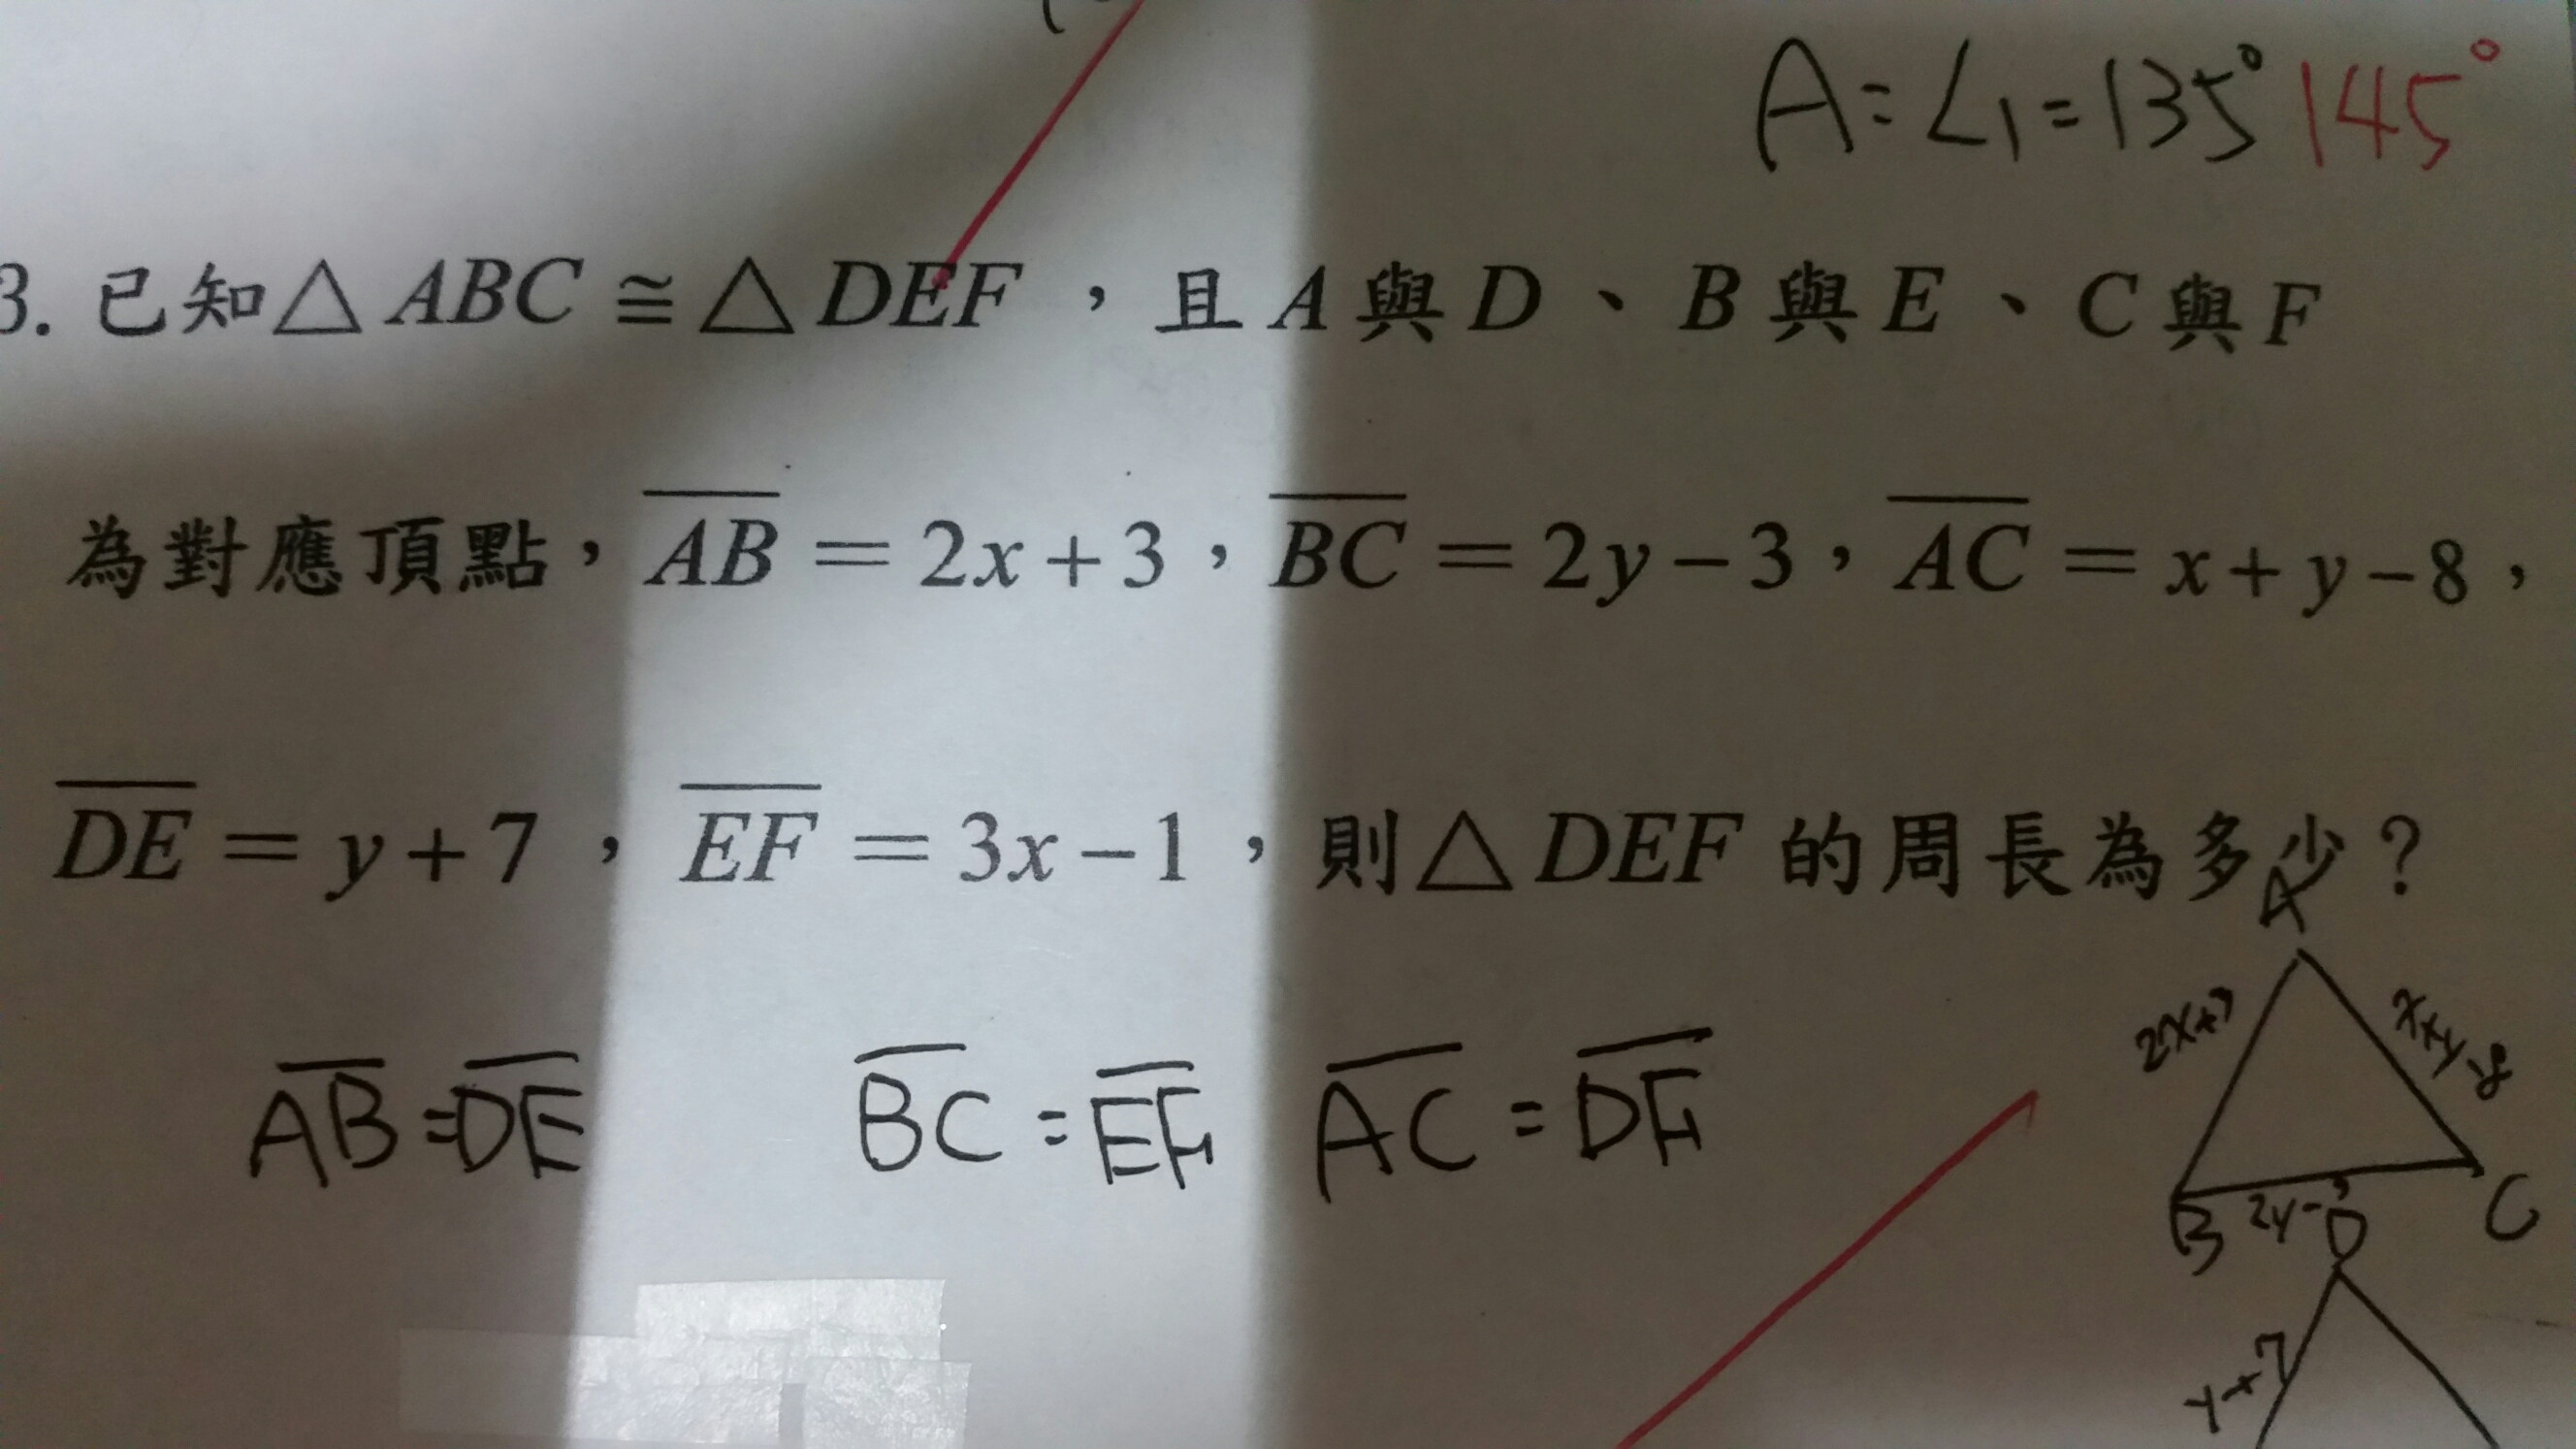 A=∠1=135° 145°
3. 已知△ABC≅△DEF，且A與D、B與E、C與F
為對應頂點，AB=2x+3，BC=2y-3，AC=x+y-8，
DE=y+7，EF=3x-1，則△DEF的周長為多少？
AB=DE BC=EF AC=DF
A
2x+3 x+y-8
B 2y-3 C
D
y+7